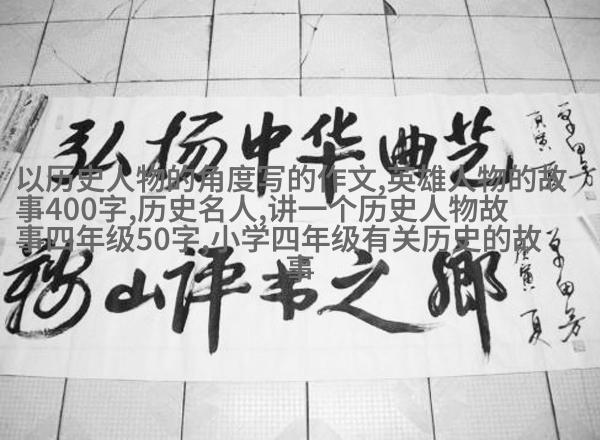 弘扬中华曲艺
庚寅 夏
单田芳
以历史人物的角度写的作文,英雄人物的故
事400字,历史名人,讲一个历史人物故
事四年级50字,小学四年级有关历史的故
事
鞍山评书之乡
庚寅 夏
单田芳